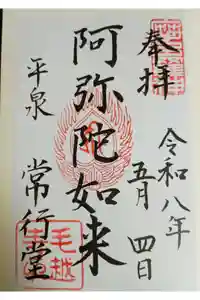 奉拝
令和八年
五月四日
阿弥陀如来
平泉
常行堂
毛越